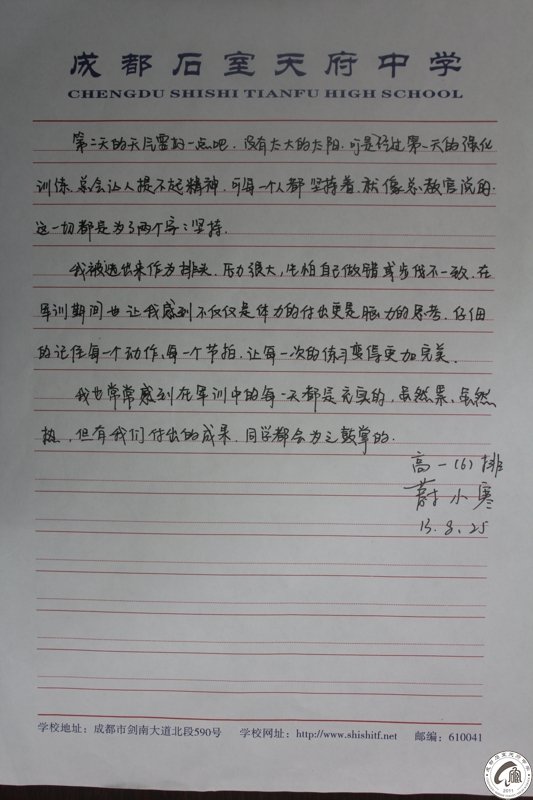 成都石室天府中学
CHENGDU SHISHI TIANFU HIGH SCHOOL
第二天的天气要好一点吧，没有太大的太阳，可是经过第一天的强化
训练，总会让人提不起精神，可每一个人都坚持着，就像总教官说的：
这一切都是为了两个字：坚持。
我被选出来作为排头，压力很大，生怕自己做错或步伐不一致，在
军训期间也让我感到不仅仅是体力的付出更是脑力的思考，仔细
的记住每一个动作，每一个节拍，让每一次的练习变得更加完美。
我也常常感到在军训中的每一天都是充实的，虽然累、虽然
热，但有我们付出的成果，同学都会为之鼓掌的。
高一（6）排
蔚小寒
13.8.25
学校地址：成都市剑南大道北段590号 学校网址：http://www.shishitf.net 邮编：610041
2011